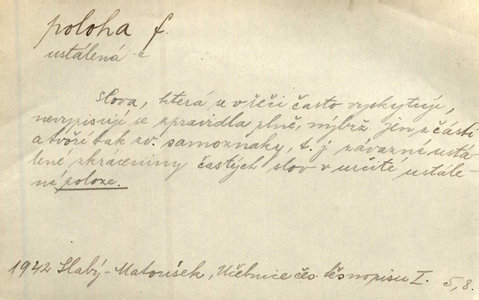 poloha f.
ustálená ~
Slova, která se v řeči často vyskytují,
nevypisují se zpravidla plně, nýbrž jen z části
a tvoří tak zv. samoznaky, t. j. závazné ustá-
lené zkráceniny častých slov v určité ustále-
né poloze.
1942 Slabý-Matoušek, Učebnice čes. těsnopisu I. 5,8.